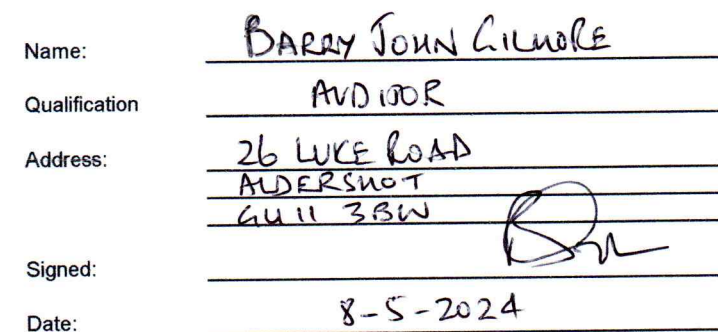 Name: BARRY JOHN GILMORE
Qualification AUDITOR
Address: 26 LUKE ROAD
ALDERSHOT
GU11 3BW
Signed:
Date: 8-5-2024